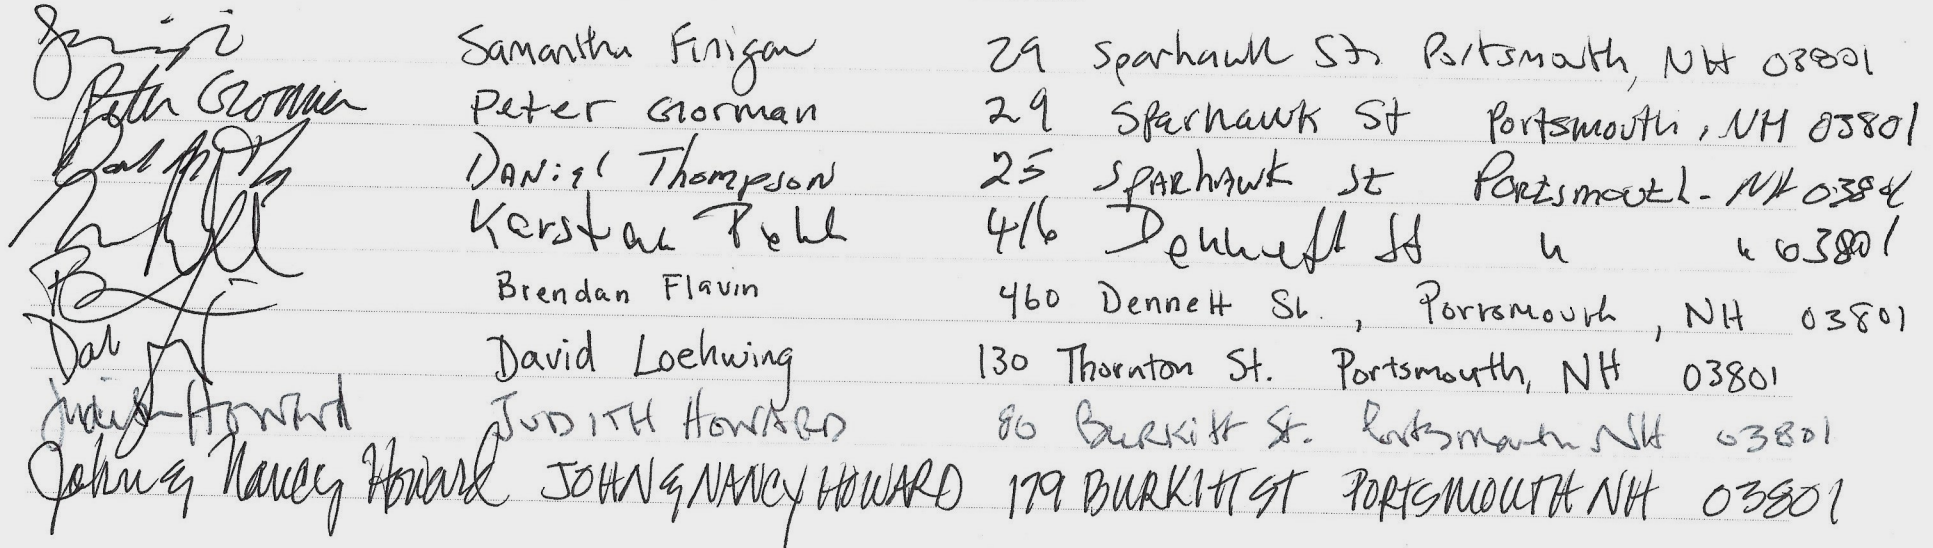 Samantha Finigan 29 Sparhawk St. Portsmouth, NH 03801
Peter Gorman Peter Gorman 29 Sparhawk St Portsmouth, NH 03801
Daniel Thompson 25 SPARHAWK St Portsmouth. NH 03801
416 Dennett St " " 03801
Brendan Flavin 460 Dennett St., Portsmouth, NH 03801
David Loehwing 130 Thornton St. Portsmouth, NH 03801
Judith Howard JUDITH HOWARD 80 Burkitt St. Portsmouth NH 03801
John & Nancy Howard JOHN & NANCY HOWARD 179 BURKITT ST PORTSMOUTH NH 03801